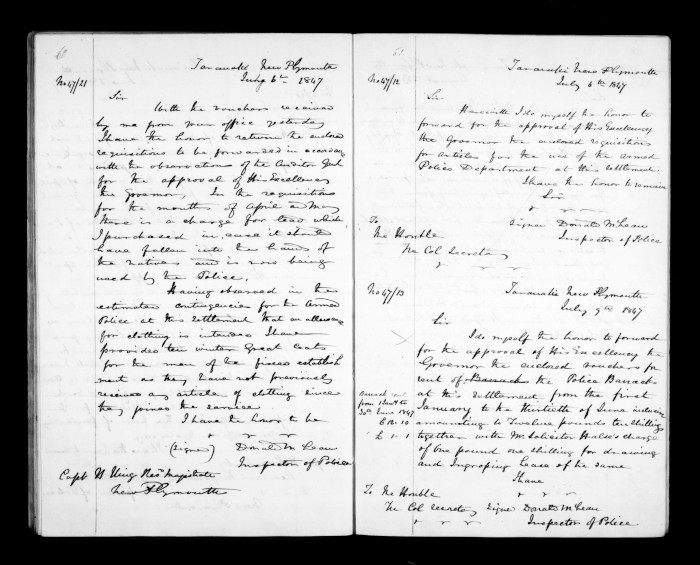 Taranaki New Plymouth
July 6th 1847
No 47/21
Sir
With the vouchers received
by me from your office yesterday
I have the honor to return the enclosed
requisitions to be forwarded in accordance
with the observations of the Auditor Genl
for the approval of His Excellency
the Governor. In the requisitions
for the months of April & May
there is a charge for lead which
I purchased in case it should
have fallen into the hands of
the natives and is now being
used by the Police.
Having observed in the
estimated contingencies for the Armed
Police at this Settlement that an allowance
for clothing is intended I have
provided ten winter Great Coats
for the men of the fixed establish
ment as they have not previously
received any article of clothing since
they joined the service.
I have the honor to be
(signed) Donald McLean
Inspector of Police
Capt King Rest Magistrate
New Plymouth
61
Taranaki New Plymouth
July 6th 1847
No 47/12
Sir
Herewith I do myself the honor to
forward for the approval of His Excellency
the Governor the enclosed requisitions
for articles for the use of the armed
Police Department at this Settlement.
I have the honor to remain
Sir
Signed Donald McLean
Inspector of Police
To
The Honble
The Col Secretary
No 47/13
Taranaki New Plymouth
July 9th 1847
Sir
I do myself the honor to forward
for the approval of His Excellency the
Governor the enclosed vouchers for
rent of Barrack the Police Barrack
at this Settlement from the first
January to the thirtieth of June inclusive
amounting to Twelve pounds ten shillings
together with Mr Solicitor Halse's charge
of one pound one shilling for drawing
and Ingrossing Lease of the same
Barrack rent
from 1 Jany to
30th June 1847
£ 12.10
£ 1-1
I have
To The Honble
The Col Secretary Signed Donald McLean
Inspector of Police